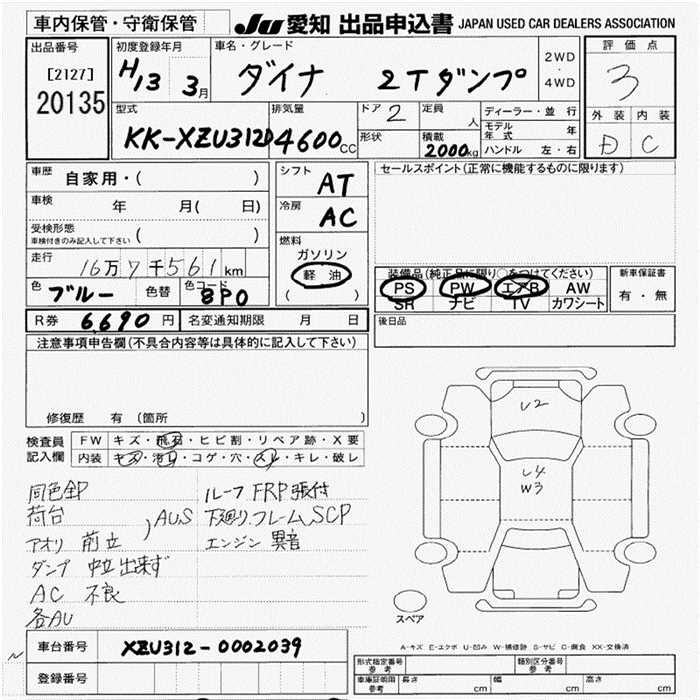 車内保管・守衛保管
JU 愛知 出品申込書 JAPAN USED CAR DEALERS ASSOCIATION
出品番号
[2127]
20135
初度登録年月
H13 3月
車名・グレード
ダイナ 2Tダンプ
2WD
・
4WD
評価点
3
外装 内装
D C
型式
KK-XZU312D
排気量
4600CC
ドア 2
形状
定員 人
積載 2000kg
ディーラー・並行
モデル年式 年
ハンドル 左・右
車歴 自家用・( )
車検 年 月( 日)
受検形態
車検付きのみ記入して下さい ( )
走行 16万7千561km
色 ブルー 色替 色コード 8P0
シフト AT
冷房 AC
燃料
ガソリン
軽油
( )
セールスポイント(正常に機能するものに限ります)
装備品(純正品に限り○をつけてください)
PS PW エアB AW
SR ナビ TV カワシート
新車保証書
有・無
R券 6,690円 名変通知期限 月 日
後日品
注意事項申告欄(不具合内容等は具体的に記入して下さい)
修復歴 有 (箇所 )
検査員記入欄
FW キズ・飛石・ヒビ割・リペア跡・X要
内装 キズ・汚レ・コゲ・穴・スレ・キレ・破レ
同色全P
荷台
アオリ 前立 , AUS
ダンプ 中立出来ず
AC 不良
各AU
ルーフ FRP張付
下廻り.フレームSCP
エンジン 異音
U2
U4
W3
スペア
A-キズ E-エクボ U-凹み W-補修跡 S-サビ C-腐食 XX-交換済
車台番号 XZU312-0002039
登録番号
形式指定番号 参考 類別区分番号 参考
車庫証明用 参考 長さ cm 幅 cm 高さ cm